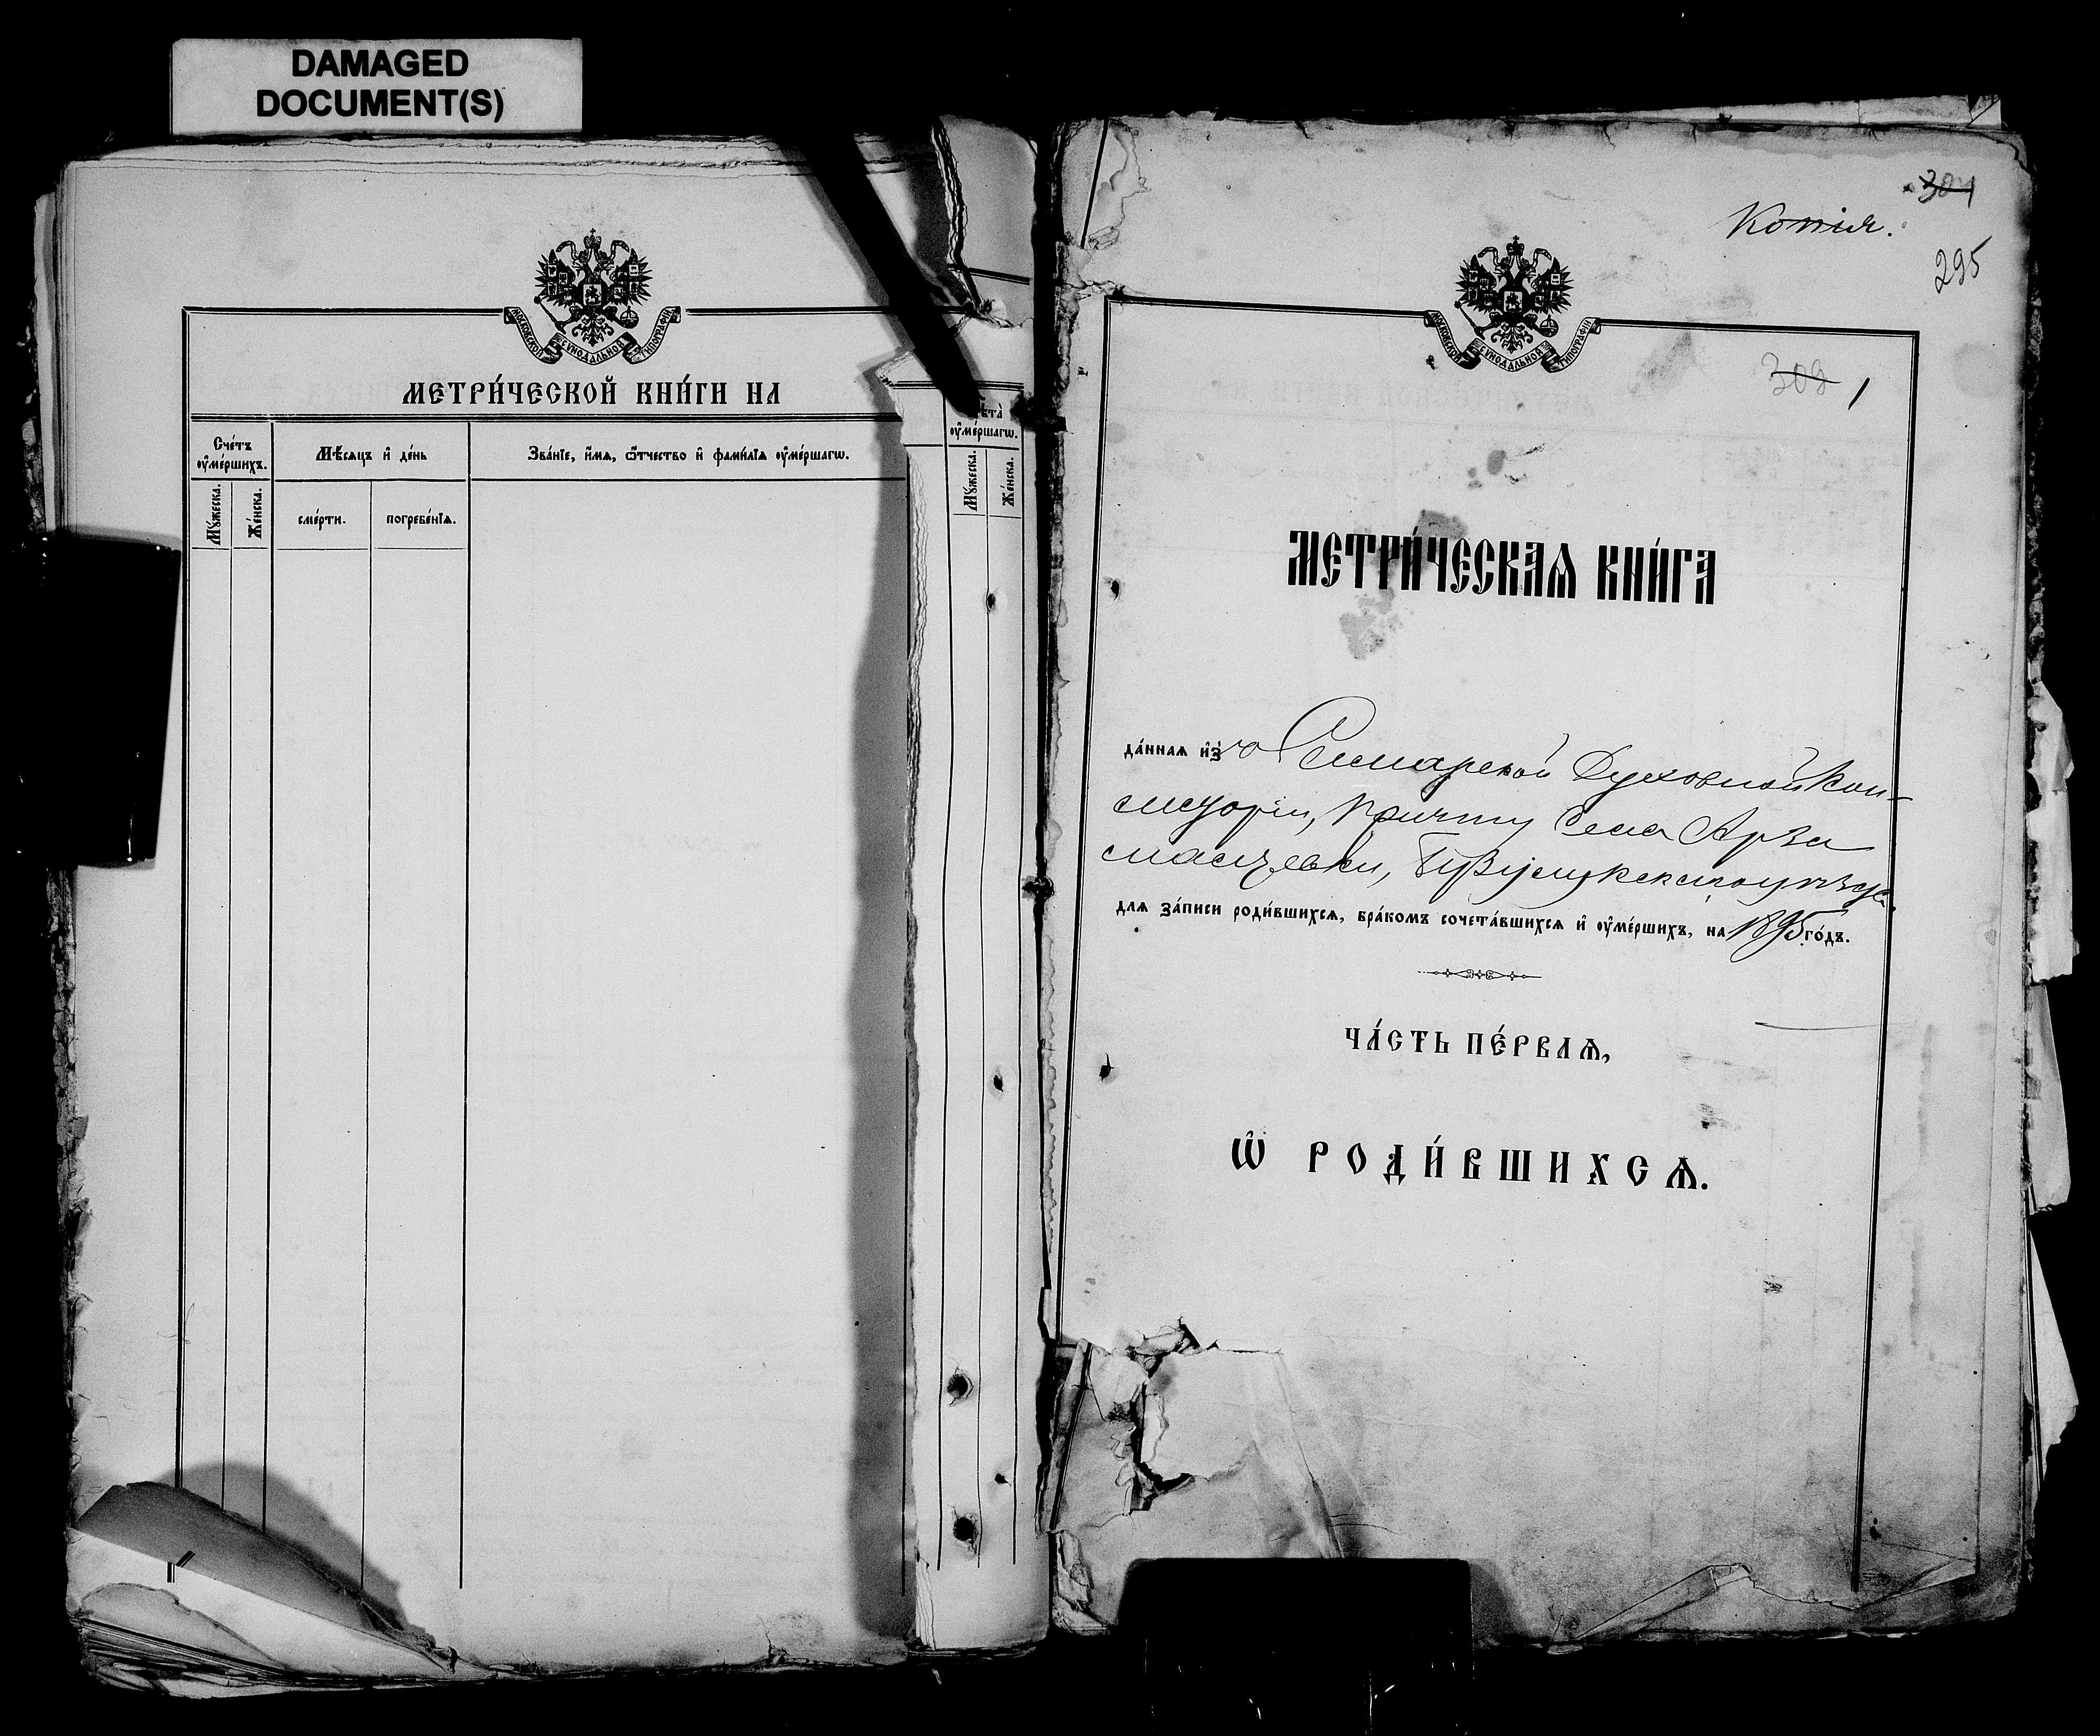 DAMAGED
DOCUMENT(S)
МОСКОВСКОЙ СѴНОДАЛЬНОЙ ТИПОГРАФІИ
МЕТРИ́ЧЕСКОЙ КНИ́ГИ НА
Сче́тъ
ᲂу҆ме́ршихъ.
Мѣ́сяцъ и҆ де́нь
Зва́нїе, и҆́мѧ, ѻ҆́тчество и҆ фами́лїѧ ᲂу҆ме́ршагѡ.
Мꙋ́жеска.
Же́нска.
сме́рти.
погребе́нїѧ.
Лѣ́та
ᲂу҆ме́ршагѡ.
Мꙋ́жеска.
Же́нска.
304
Копія.
295
МОСКОВСКОЙ СѴНОДАЛЬНОЙ ТИПОГРАФІИ
309 1
МЕТРИ́ЧЕСКАѦ КНИ́ГА
да́ннаѧ и҆зъ Самарской Духовной Кон-
систоріи, причту села Арза
масцевки, Бузулукскаго уѣзда
для за́писи роди́вшихсѧ, бра́комъ сочета́вшихсѧ и҆ ᲂу҆ме́ршихъ, на 1895 го́дъ.
ЧА́СТЬ ПЕ́РВАѦ,
Ѡ҆ РОДИ́ВШИХСѦ.